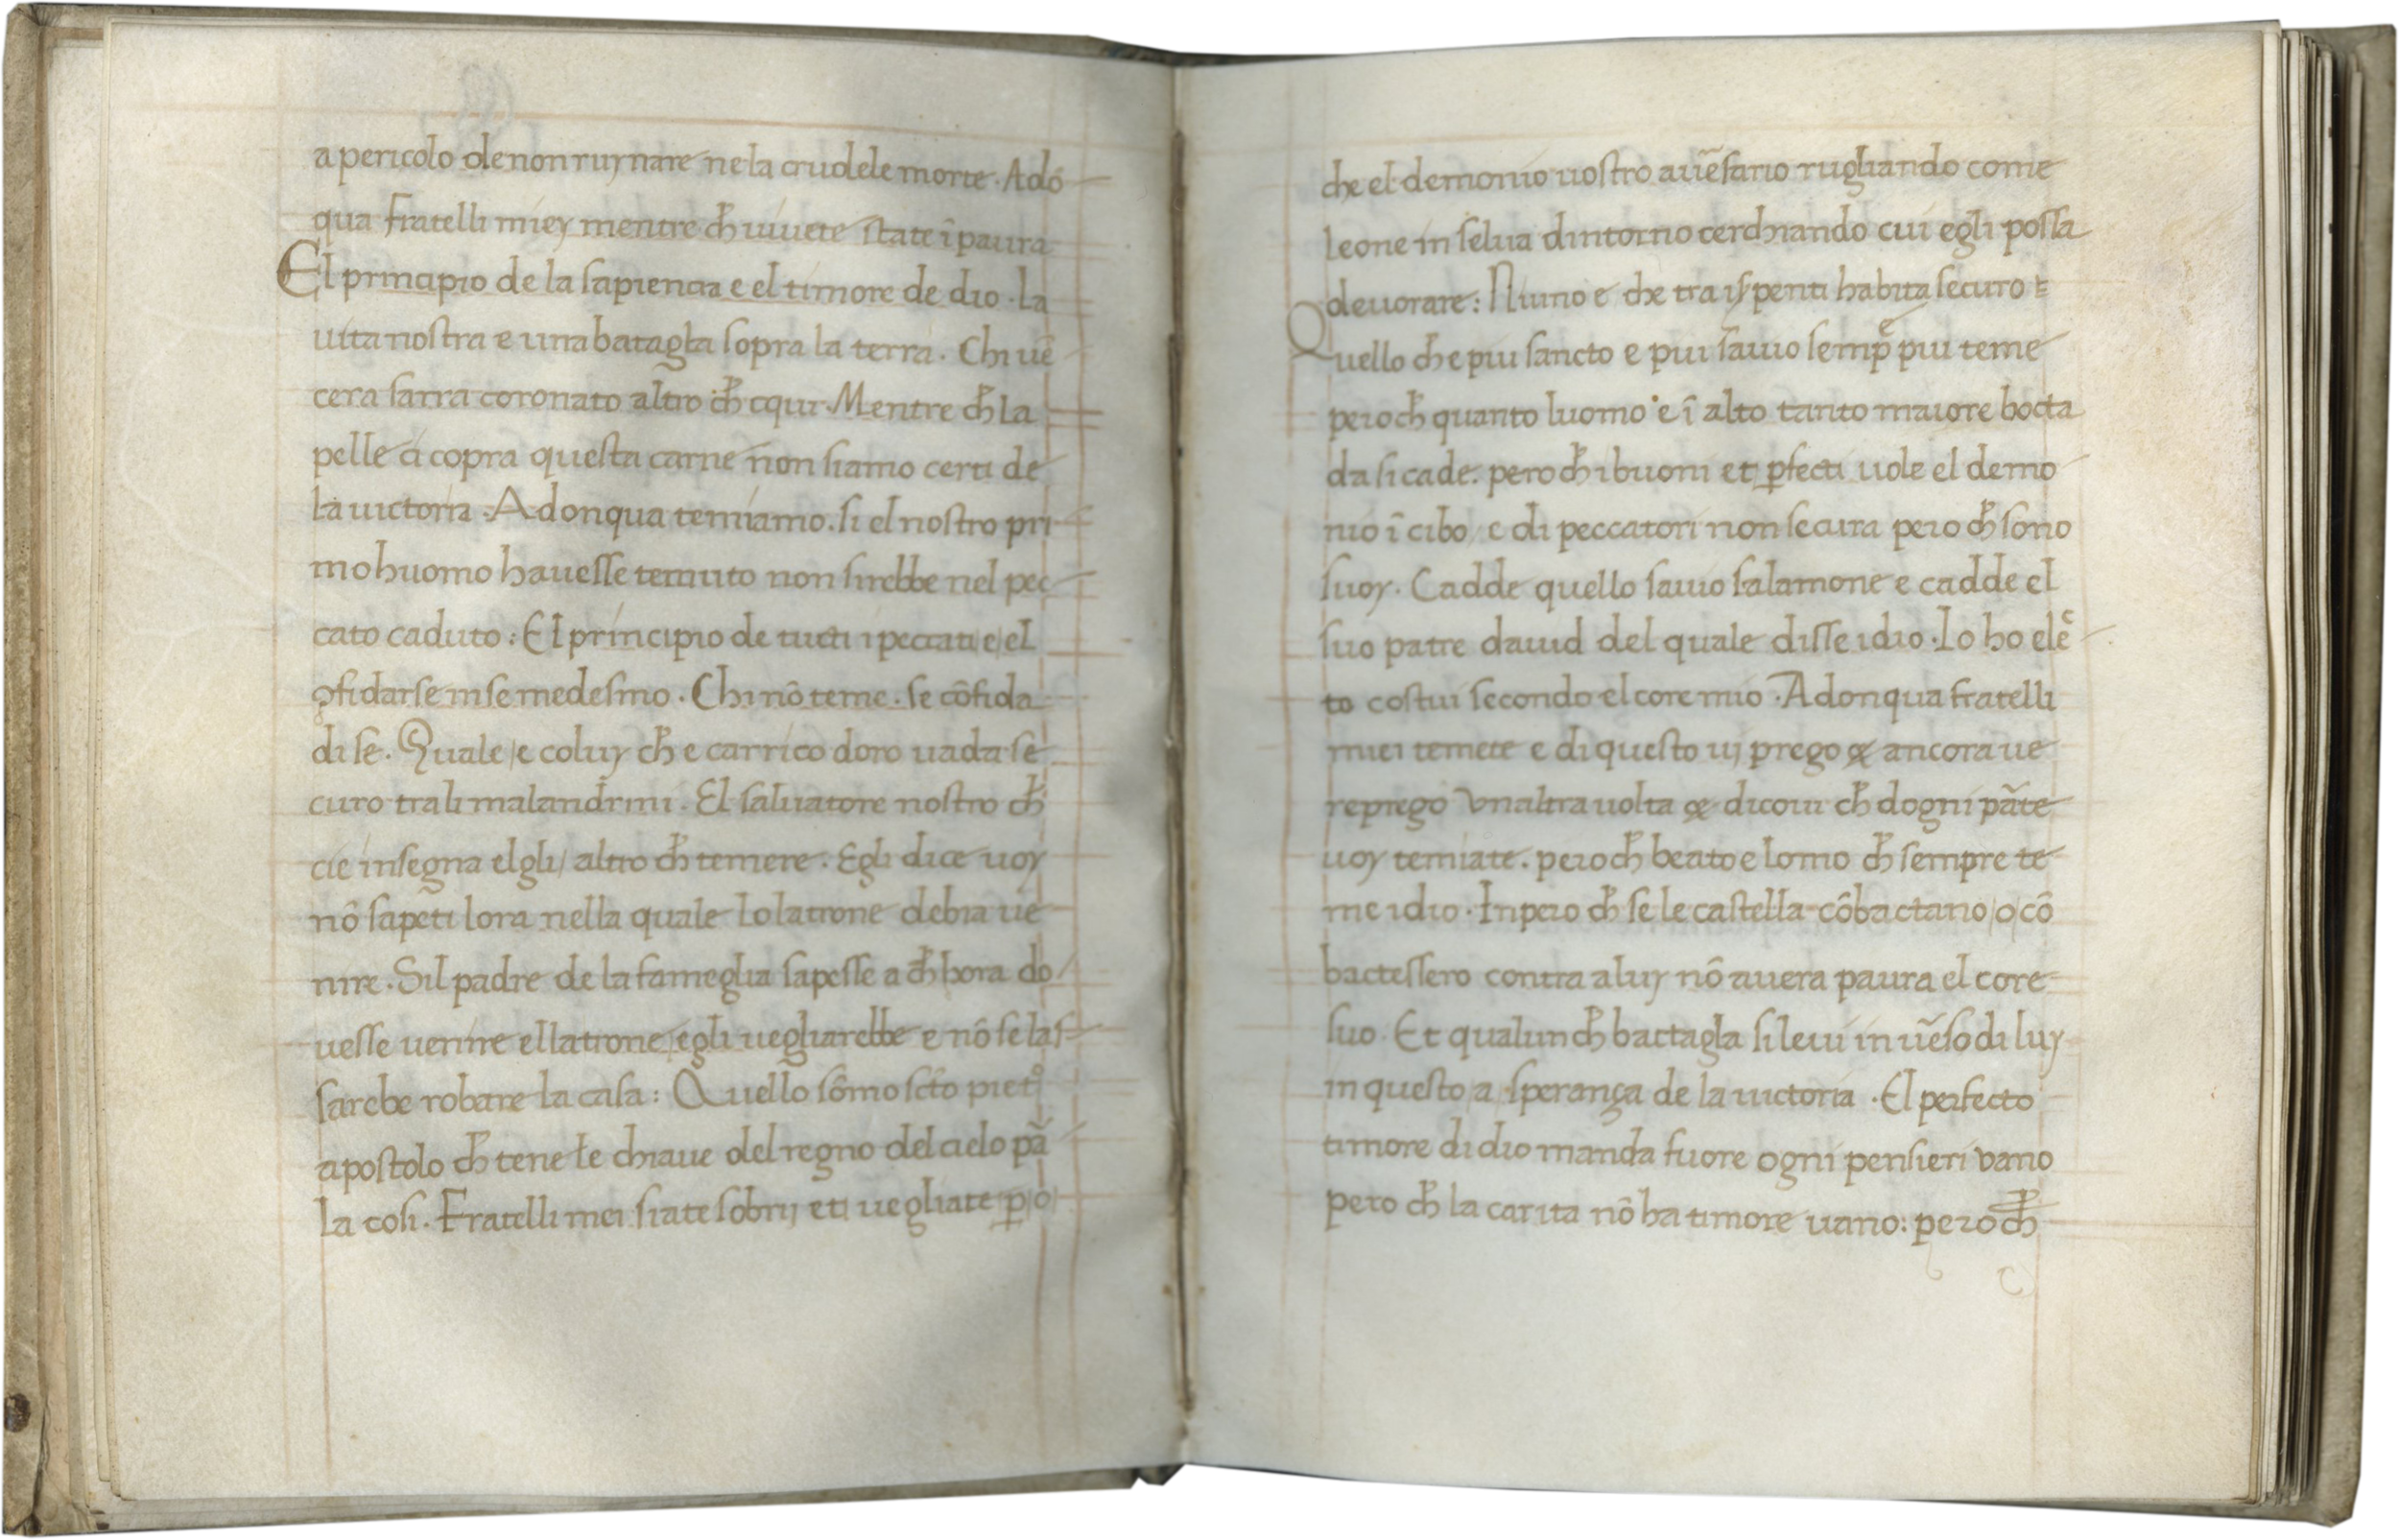 a pericolo de non ruynare ne la crudele morte · Adō
qua Fratelli miey mentre ch̄ uiuete state ī paura
El principio de la sapiencia e el timore de dio · La
uita nostra e una batagla sopra la terra. Chi uē
cera sarra coronato altro ch̄ cqui · Mentre ch̄ la
pelle ci copra questa carne non siamo certi de
la uictoria · Adonqua temiamo. si el nostro pri
mo huomo hauesse temuto non sirebbe nel pec
cato caduto : El principio de tucti i peccati /e/ el
ꝯfidarse in se medesmo. Chi nō teme. se cōfida
di se. Quale /e coluy ch̄ e carrico doro uada se
curo tra li malandrini. El saluatore nostro ch̄
cie insegna elgli/ altro ch̄ temere. Egli dice uoy
nō sapeti lora nella quale lo latrone debia ue
nire. Sil padre de la fameglia sapesse a ch̄ hora do
uesse uenire el latrone /egli uegliarebbe e nō se las
sarebe robare la casa : Quello sōmo scto piet°
apostolo ch̄ tene le chiaue del regno del cielo pā
la cosi. Fratelli mei siate sobrij eti uegliate ꝑ/o/
che el demonio uostro auēsario rugliando come
leone in selua dintorno cerchando cui egli possa
deuorare : Niuno e che tra i serpenti habita securo
Quello ch̄ e piu sancto e piu sauio semp̄ piu teme
pero ch̄ quanto luomo e ī alto tanto maiore bocta
da si cade. pero ch̄ i buoni et ꝑfecti uole el demo
nio ī cibo/ e di peccatori non se cura pero ch̄ sono
suoy. Cadde quello sauio salamone e cadde el
suo patre dauid del quale disse idio · Io ho elec
to costui secondo el core mio · Adonqua fratelli
miei temete e di questo uj prego & ancora ue
reprego Vnaltra uolta & dicoui ch̄ dogni pāte
uoy temiate. pero ch̄ beato e lomo ch̄ sempre te
me idio · Inpero ch̄ se le castella cōbactano /o/ cō
bactessero contra a luy nō auera paura el core
suo. Et qualunch̄ bactagla si leui in uēso di luy
in questo /a sperança de la uictoria · El perfecto
timore di dio manda fuore ogni pensieri vano
pero ch̄ la carita nō ha timore uano: pero ch̄